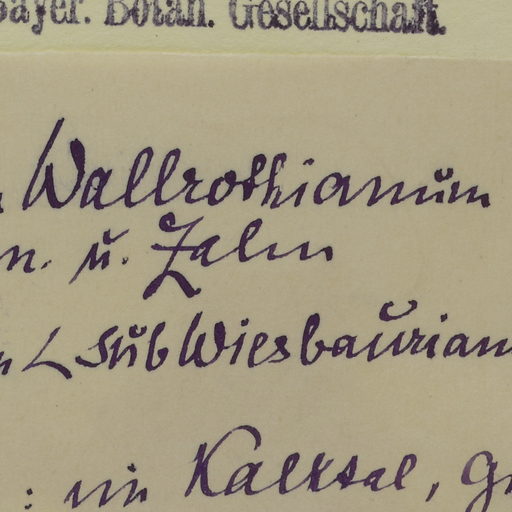 bayer. Botan. Gesellschaft.
Wallrothianum
n. u. Zahn
< subWiesbaurian
: im Kalktal, G